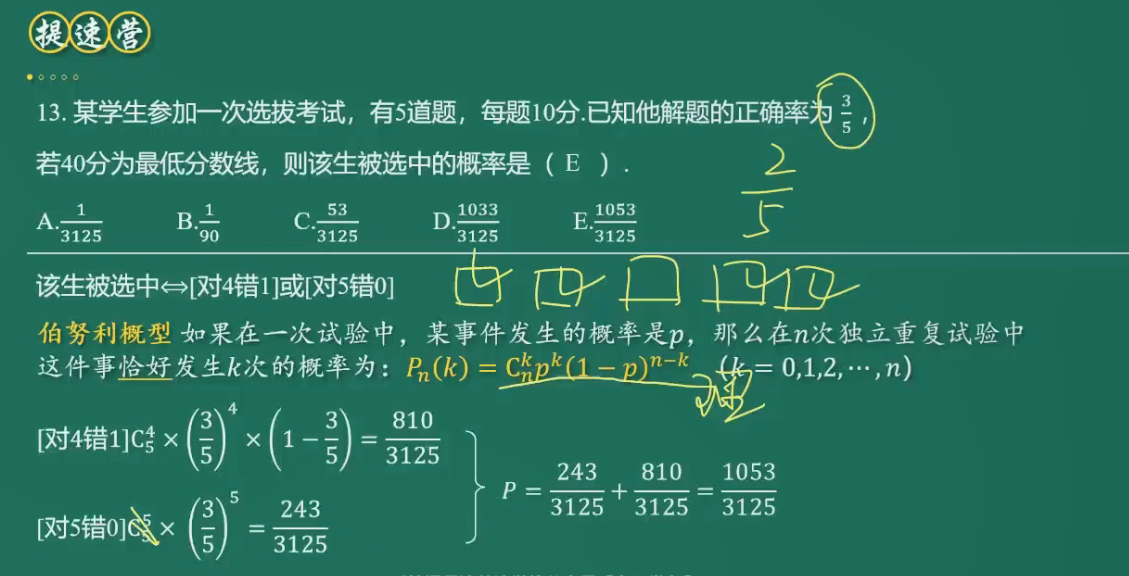 提速营
13. 某学生参加一次选拔考试，有5道题，每题10分.已知他解题的正确率为 3/5，
2/5
若40分为最低分数线，则该生被选中的概率是（ E ）.
A. 1/3125 B. 1/90 C. 53/3125 D. 1033/3125 E. 1053/3125
该生被选中⇔[对4错1]或[对5错0]
伯努利概型 如果在一次试验中，某事件发生的概率是p，那么在n次独立重复试验中
这件事恰好发生k次的概率为：Pₙ(k) = Cₙᵏpᵏ(1 − p)ⁿ⁻ᵏ (k = 0,1,2,⋯,n)
[对4错1]C₅⁴ × (3/5)⁴ × (1 − 3/5) = 810/3125
P = 243/3125 + 810/3125 = 1053/3125
[对5错0]C₅⁵ × (3/5)⁵ = 243/3125